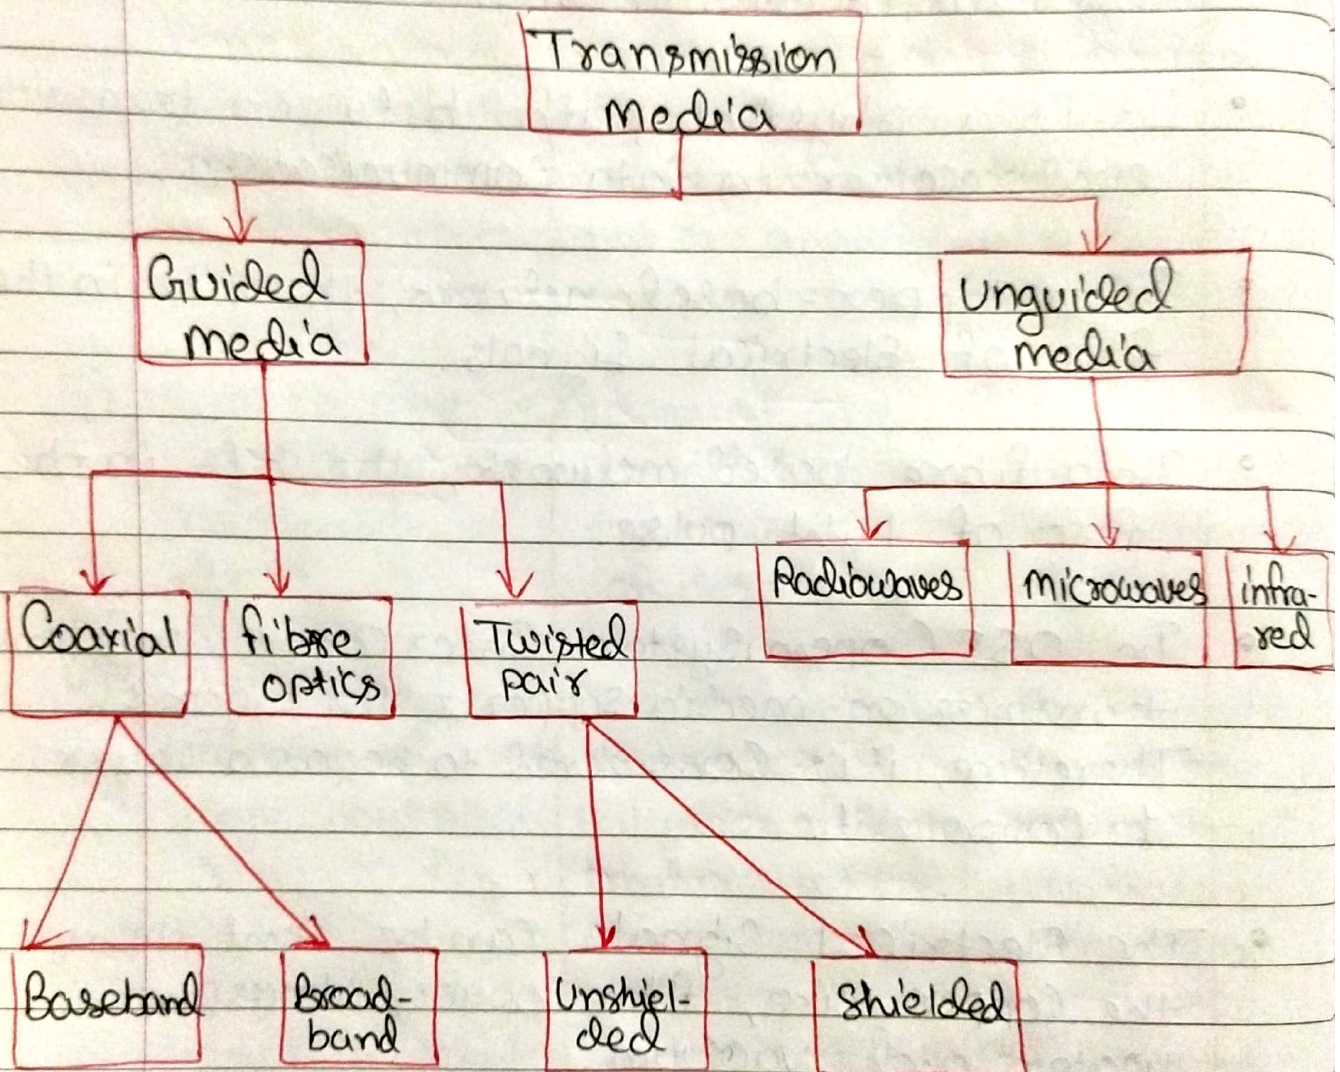 Transmission
Media
Guided
media
Unguided
media
Coaxial
fibre
optics
Twisted
pair
Radiowaves
Microwaves
infra-
red
Baseband
Broad-
band
Unshiel-
ded
Shielded